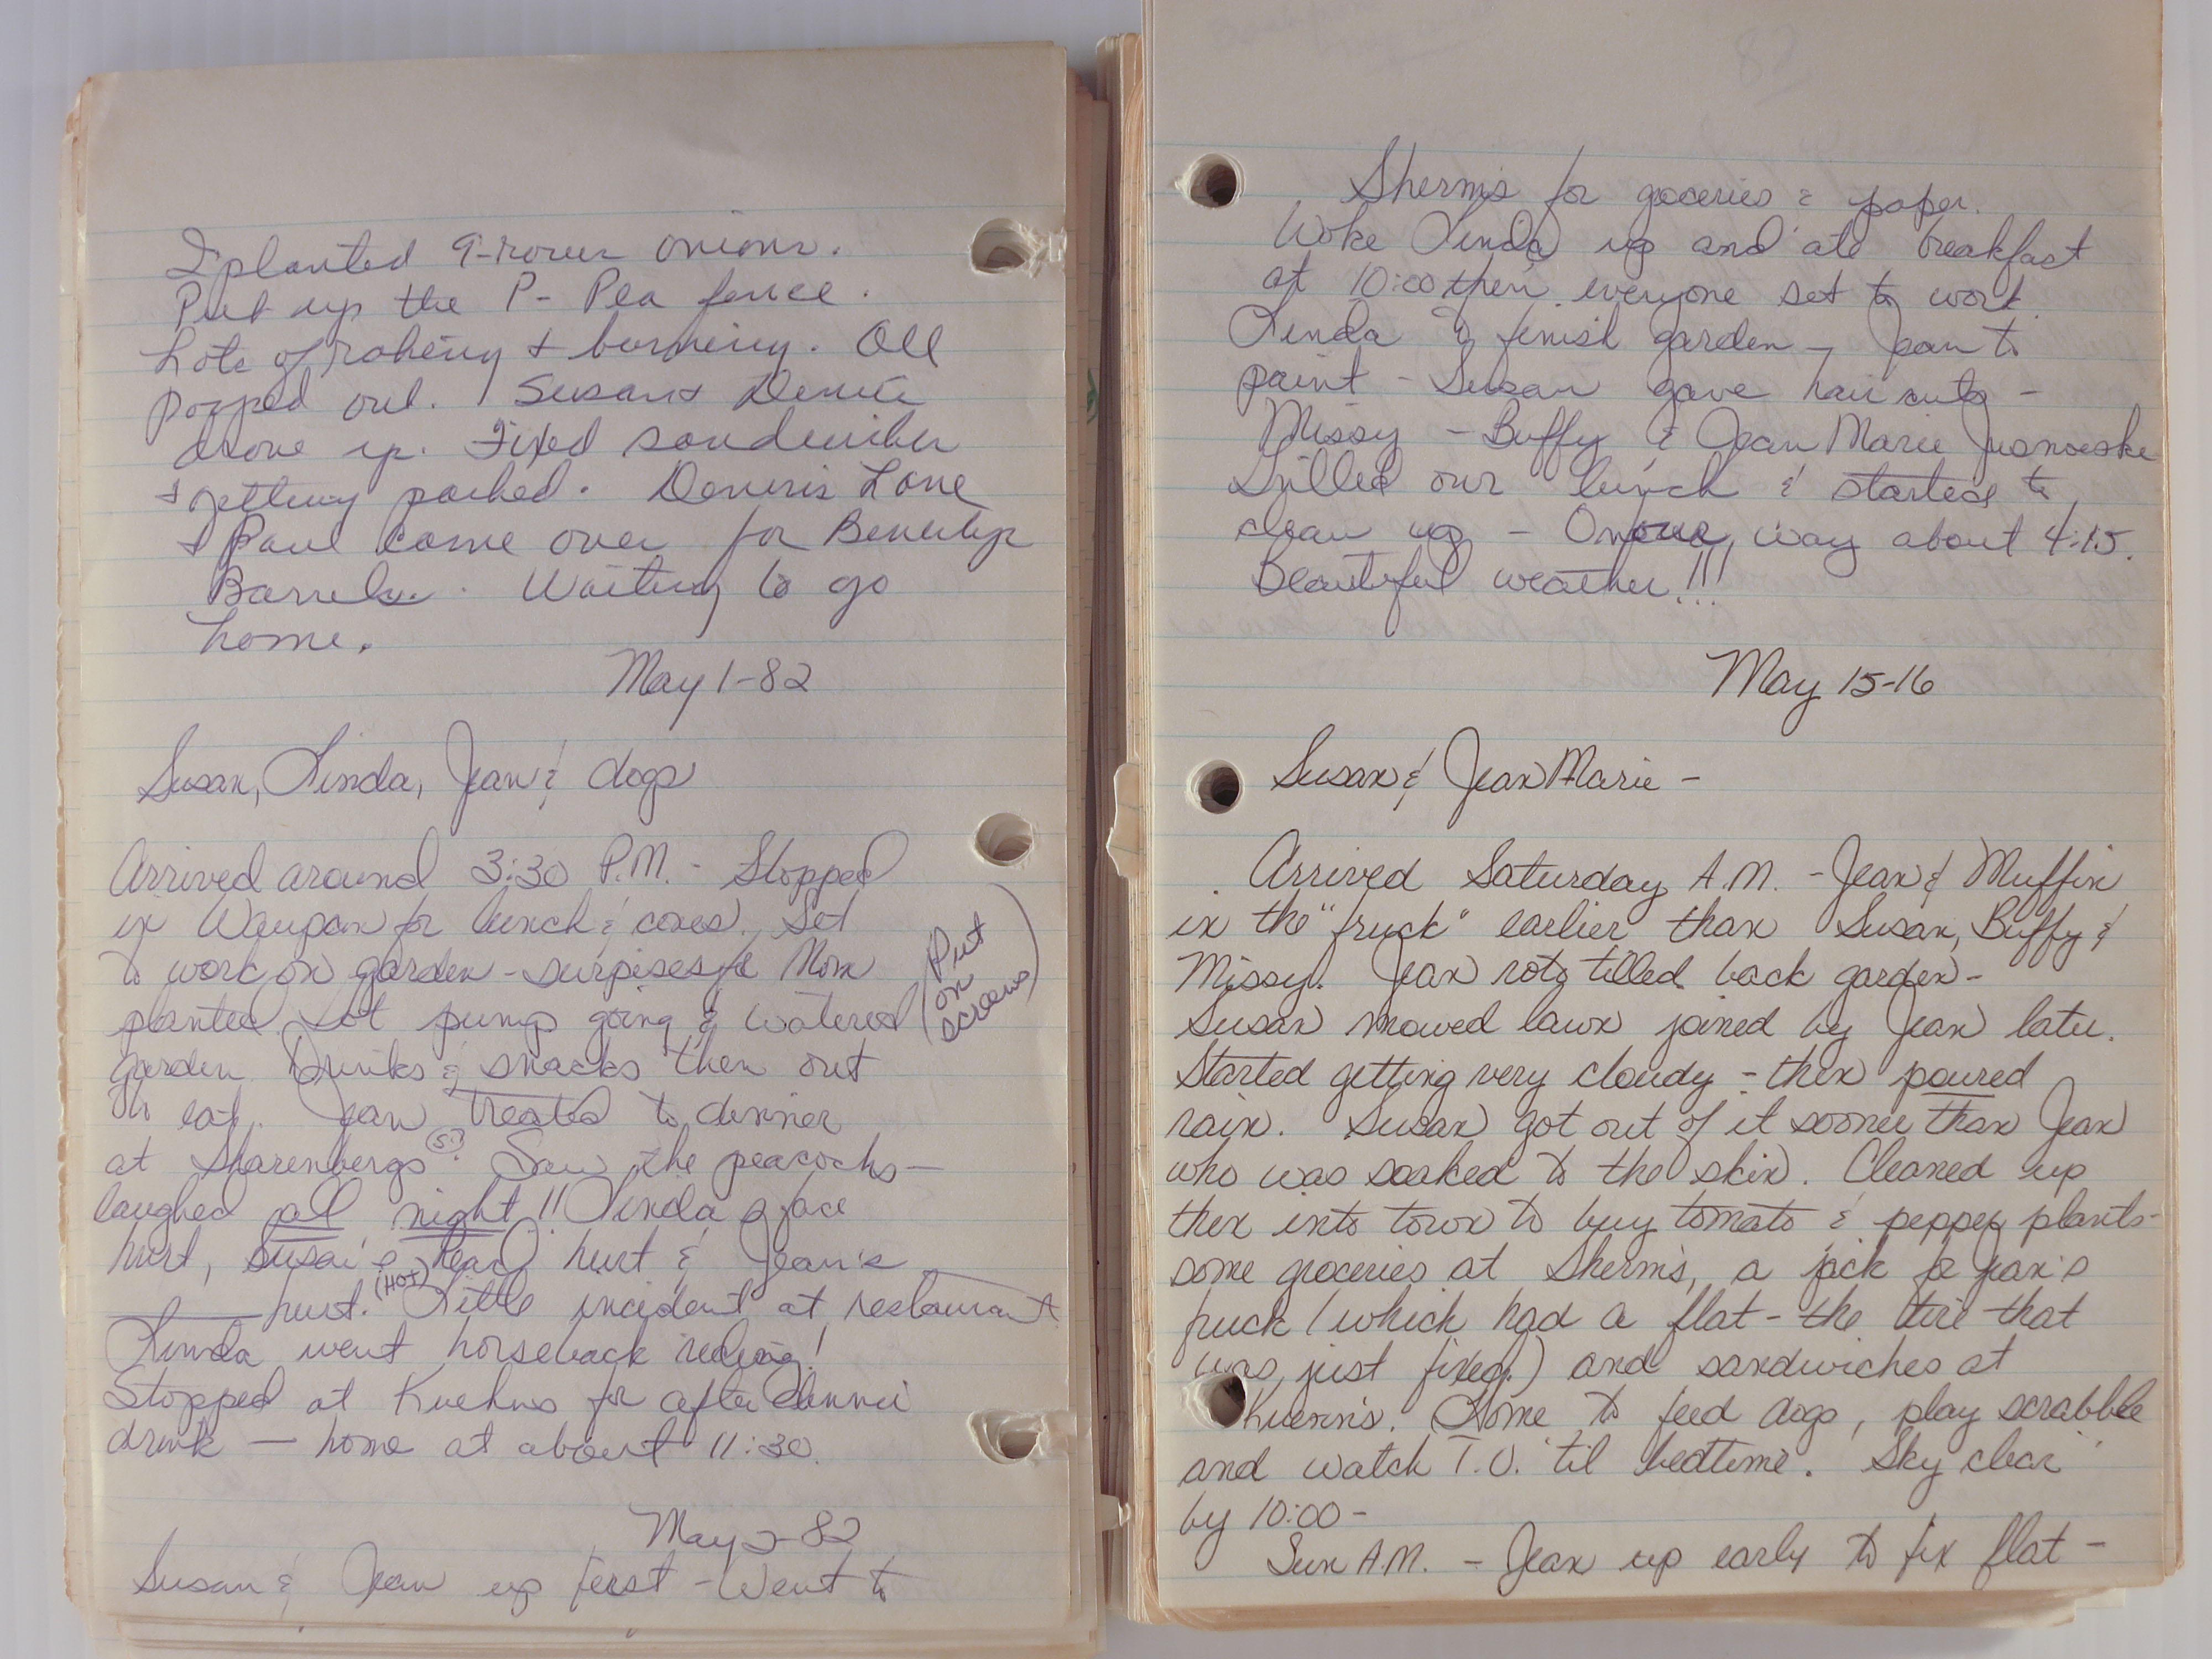 I planted 9-rows onions.
Put up the P- Pea fence.
Lots of raking + burning. All
pooped out. Susan + Dennis
drove up. Fixed sandwiches
+ getting packed. Dennis Lane
+ Paul came over for Beverlys
Barrels. Waiting to go
home.
May 1-82
Susan, Linda, Jean & dogs
Arrived around 3:30 P.M. - Stopped
in Waupan for lunch & cones. Set
to work on garden - surpises Mom
planted. Got pump going & watered
(Put
on
screens)
garden. Drinks & snacks then out
to eat. Jean treated to dinner
at Sharenbergs (S?). Saw the peacocks -
laughed all night!! Linda's face
hurt, Susan's head hurt & Jean's
____ hurt. (HOT) Little incident at restaurant
Linda went horseback riding!
Stopped at Kuehns for after dinner
drink — home at about 11:30.
May 2-82
Susan & Jean up first - Went to
82
Sherm's for goceries & paper.
Woke Linda up and ate breakfast
at 10:00 then everyone set to work.
Linda to finish garden - Jean to
paint - Susan gave haircuts -
Missy - Buffy & Jean Marie
Grilled our lunch & started to
clean up - On our way about 4:15.
Beautiful weather!!!
May 15-16
Susan & Jean Marie -
Arrived Saturday A.M. - Jean & Muffin
in the "truck" earlier than Susan, Buffy &
Missy. Jean roto tilled back garden -
Susan mowed lawn joined by Jean later.
Started getting very cloudy - then poured
rain. Susan got out of it sooner than Jean
who was soaked to the skin. Cleaned up
then into town to buy tomato & pepper plants -
some groceries at Sherm's, a jack for Jean's
truck (which had a flat - the tire that
was just fixed.) and sandwiches at
Kuehn's. Home to feed dogs, play scrabble
and watch T.V. 'til bedtime. Sky clear
by 10:00 -
Sun A.M. - Jean up early to fix flat -